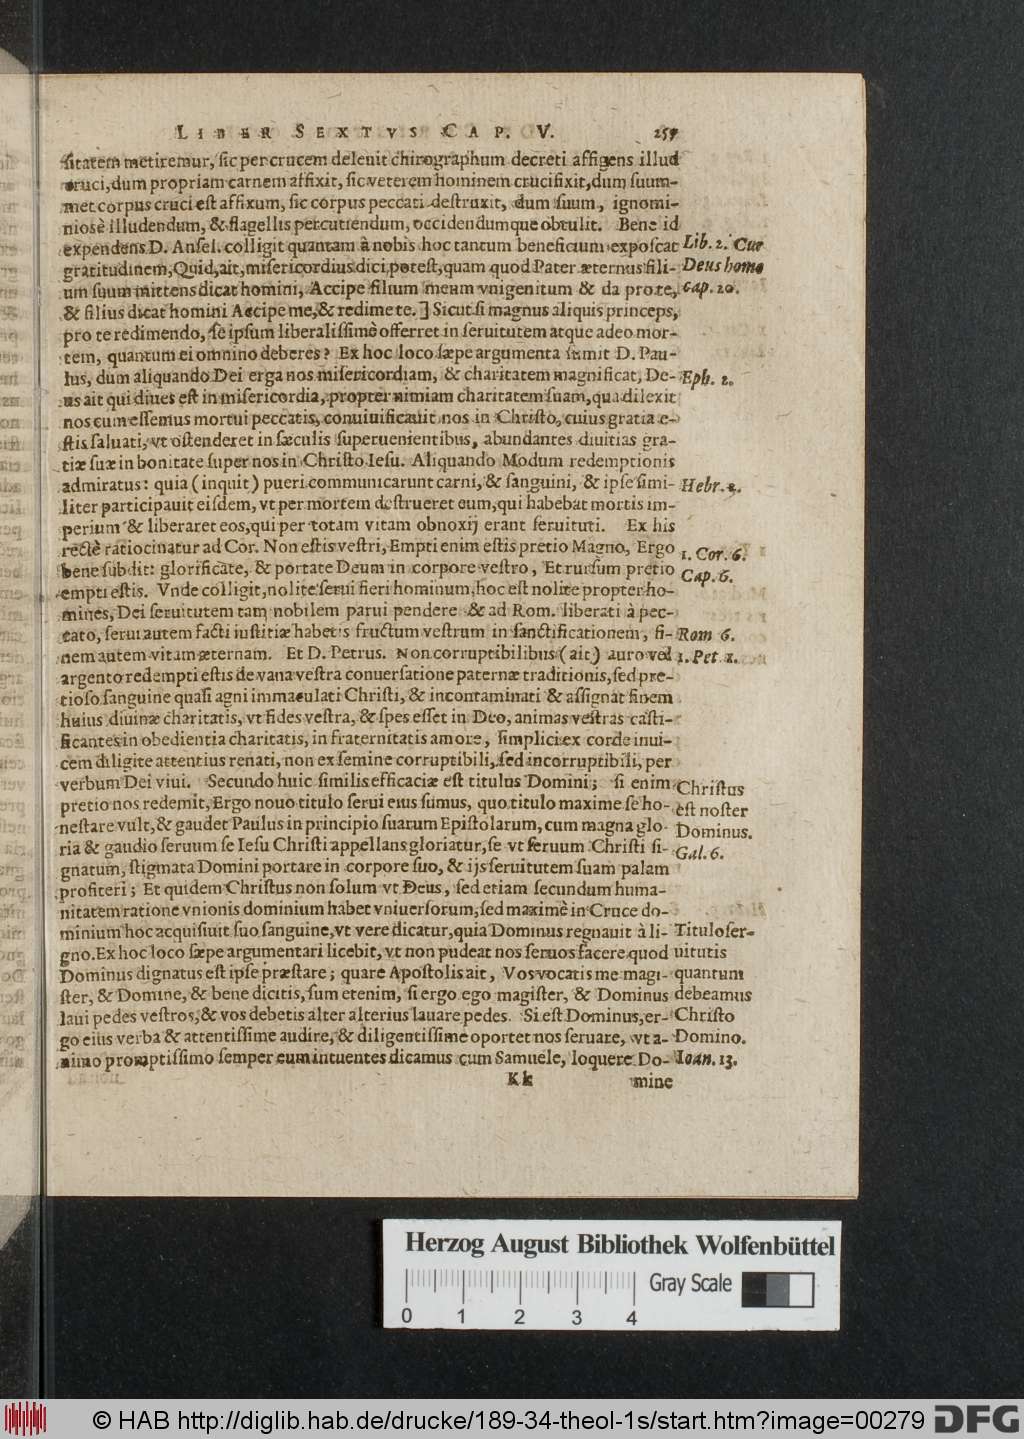 LIBER SEXTVS CAP. V. 257
ſitatem metiremur, ſic per crucem delenit chirographum decreti affigens illud
cruci, dum propriam carnem affixit, ſic veterem hominem crucifixit, dum ſuum-
met corpus cruci eſt affixum, ſic corpus peccati deſtruxit, dum ſuum, ignomi-
niosè illudendum, & flagellis percutiendum, occidendumque obtulit. Bene id
expendens D. Anſel. colligit quantam à nobis hoc tantum beneficium expoſcat
Lib. 2. Cur
gratitudinem, Quid, ait, miſericordius dici poteſt, quam quod Pater æternus fili-
Deus homo
um ſuum mittens dicat homini, Accipe filium meum vnigenitum & da pro te,
cap. 20.
& filius dicat homini Accipe me, & redime te. ] Sicut ſi magnus aliquis princeps,
pro te redimendo, ſe ipſum liberaliſſimè offerret in ſeruitutem atque adeo mor-
tem, quantum ei omnino deberes? Ex hoc loco ſæpe argumenta ſumit D. Pau-
lus, dum aliquando Dei erga nos miſericordiam, & charitatem magnificat, De-
Eph. 2.
us ait qui diues eſt in miſericordia, propter nimiam charitatem ſuam, qua dilexit
nos cum eſſemus mortui peccatis, conuiuificauit nos in Chriſto, cuius gratia e-
ſtis ſaluati, vt oſtenderet in ſæculis ſuperuenientibus, abundantes diuitias gra-
tiæ ſuæ in bonitate ſuper nos in Chriſto Ieſu. Aliquando Modum redemptionis
admiratus: quia (inquit) pueri communicarunt carni, & ſanguini, & ipſe ſimi-
Hebr. 2.
liter participauit eiſdem, vt per mortem deſtrueret eum, qui habebat mortis im-
perium & liberaret eos, qui per totam vitam obnoxij erant ſeruituti. Ex his
rectè ratiocinatur ad Cor. Non eſtis veſtri, Empti enim eſtis pretio Magno, Ergo
1. Cor. 6.
bene ſubdit: glorificate, & portate Deum in corpore veſtro, Et rurſum pretio
Cap. 6.
empti eſtis. Vnde colligit, nolite ſerui fieri hominum, hoc eſt nolite propter ho-
mines, Dei ſeruitutem tam nobilem parui pendere & ad Rom. liberati à pec-
cato, ſerui autem facti iuſtitiæ habetis fructum veſtrum in ſanctificationem, fi-
Rom 6.
nem autem vitam æternam. Et D. Petrus. Non corruptibilibus (ait) auro vel
1. Pet 1.
argento redempti eſtis de vana veſtra conuerſatione paternæ traditionis, ſed pre-
tioſo ſanguine quaſi agni immaculati Chriſti, & incontaminati & aſſignat finem
huius diuinæ charitatis, vt fides veſtra, & ſpes eſſet in Deo, animas veſtras caſti-
ficantes in obedientia charitatis, in fraternitatis amore, ſimplici ex corde inui-
cem diligite attentius renati, non ex ſemine corruptibili, ſed incorruptibili, per
verbum Dei viui. Secundo huic ſimilis efficaciæ eſt titulus Domini; ſi enim
Chriſtus
pretio nos redemit, Ergo nouo titulo ſerui eius ſumus, quo titulo maxime ſe ho-
eſt noſter
neſtare vult, & gaudet Paulus in principio ſuarum Epiſtolarum, cum magna glo-
Dominus.
ria & gaudio ſeruum ſe Ieſu Chriſti appellans gloriatur, ſe vt ſeruum Chriſti ſi-
Gal. 6.
gnatum, ſtigmata Domini portare in corpore ſuo, & ijs ſeruitutem ſuam palam
profiteri; Et quidem Chriſtus non ſolum vt Deus, ſed etiam ſecundum huma-
nitatem ratione vnionis dominium habet vniuerſorum, ſed maximè in Cruce do-
minium hoc acquiſiuit ſuo ſanguine, vt vere dicatur, quia Dominus regnauit à li-
Titulo ſer-
gno. Ex hoc loco ſæpe argumentari licebit, vt non pudeat nos ſeruos facere quod
uitutis
Dominus dignatus eſt ipſe præſtare; quare Apoſtolis ait, Vos vocatis me magi-
quantum
ſter, & Domine, & bene dicitis, ſum etenim, ſi ergo ego magiſter, & Dominus
debeamus
laui pedes veſtros, & vos debetis alter alterius lauare pedes. Si eſt Dominus, er-
Chriſto
go eius verba & attentiſſime audire, & diligentiſſime oportet nos ſeruare, vt a-
Domino.
nimo promptiſſimo ſemper eum intuentes dicamus cum Samuele, loquere Do-
Ioan. 13.
Kk mine
Herzog August Bibliothek Wolfenbüttel
Gray Scale
0 1 2 3 4
© HAB http://diglib.hab.de/drucke/189-34-theol-1s/start.htm?image=00279 DFG